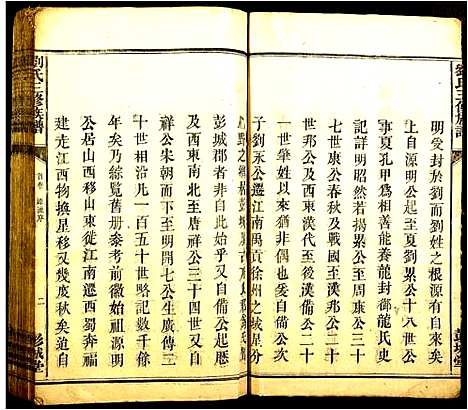 明受封於劉而劉姓之根源自來矣
上自源明公起至夏劉累公十八世公
事夏孔甲為相善能養龍封御龍氏史
記詳明昭然若揭累公下至周康公三十
七世康公春秋及戰國至西
世邦公及西東漢代至後漢備公二十
一世肇姓以來猶可考者矣自備公次
子劉永公遷江南禹貢徐州之域星分
彭城郡者非無始乎又自備公起歷
及西東南北至唐祥公三十四世又自
祥公宋朝而至明開七公生廣傳三
十世相沿凡一百五十世略記數千餘
年矣乃綜覽舊册參考前徽始祖源明
公居山西移山東遷江南遷西蜀奔福
建走江西物換星移又幾度秋矣迨自
劉氏三修族譜
首卷
源流序
二
彭城堂
劉氏三修族譜
彭城堂